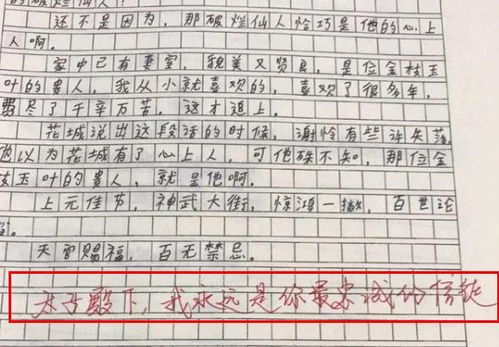 的破烂仙人？
还不是因为，那破烂仙人恰巧是他的心上
人啊。
家中已有妻室，貌美又贤良，是位金枝玉
叶的贵人，我从小就喜欢的，喜欢了很多年，
尽了千辛万苦，这才追上。
花城说出这段话的时候，谢怜有些许失落，
他以为花城有了心上人，可他殊不知，那位金
枝玉叶的贵人，就是他啊。
上元佳节，神武大街，惊鸿一瞥，百世沦
陷。
天官赐福，百无禁忌。
太子殿下，我永远是你最忠诚的信徒